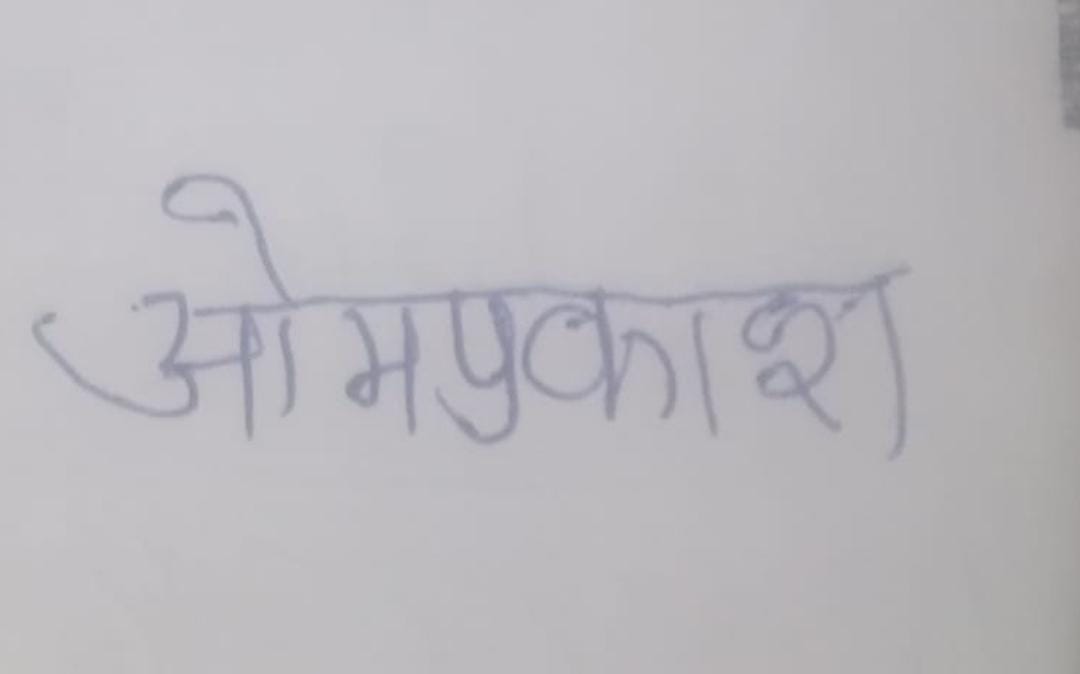 ओमप्रकाश